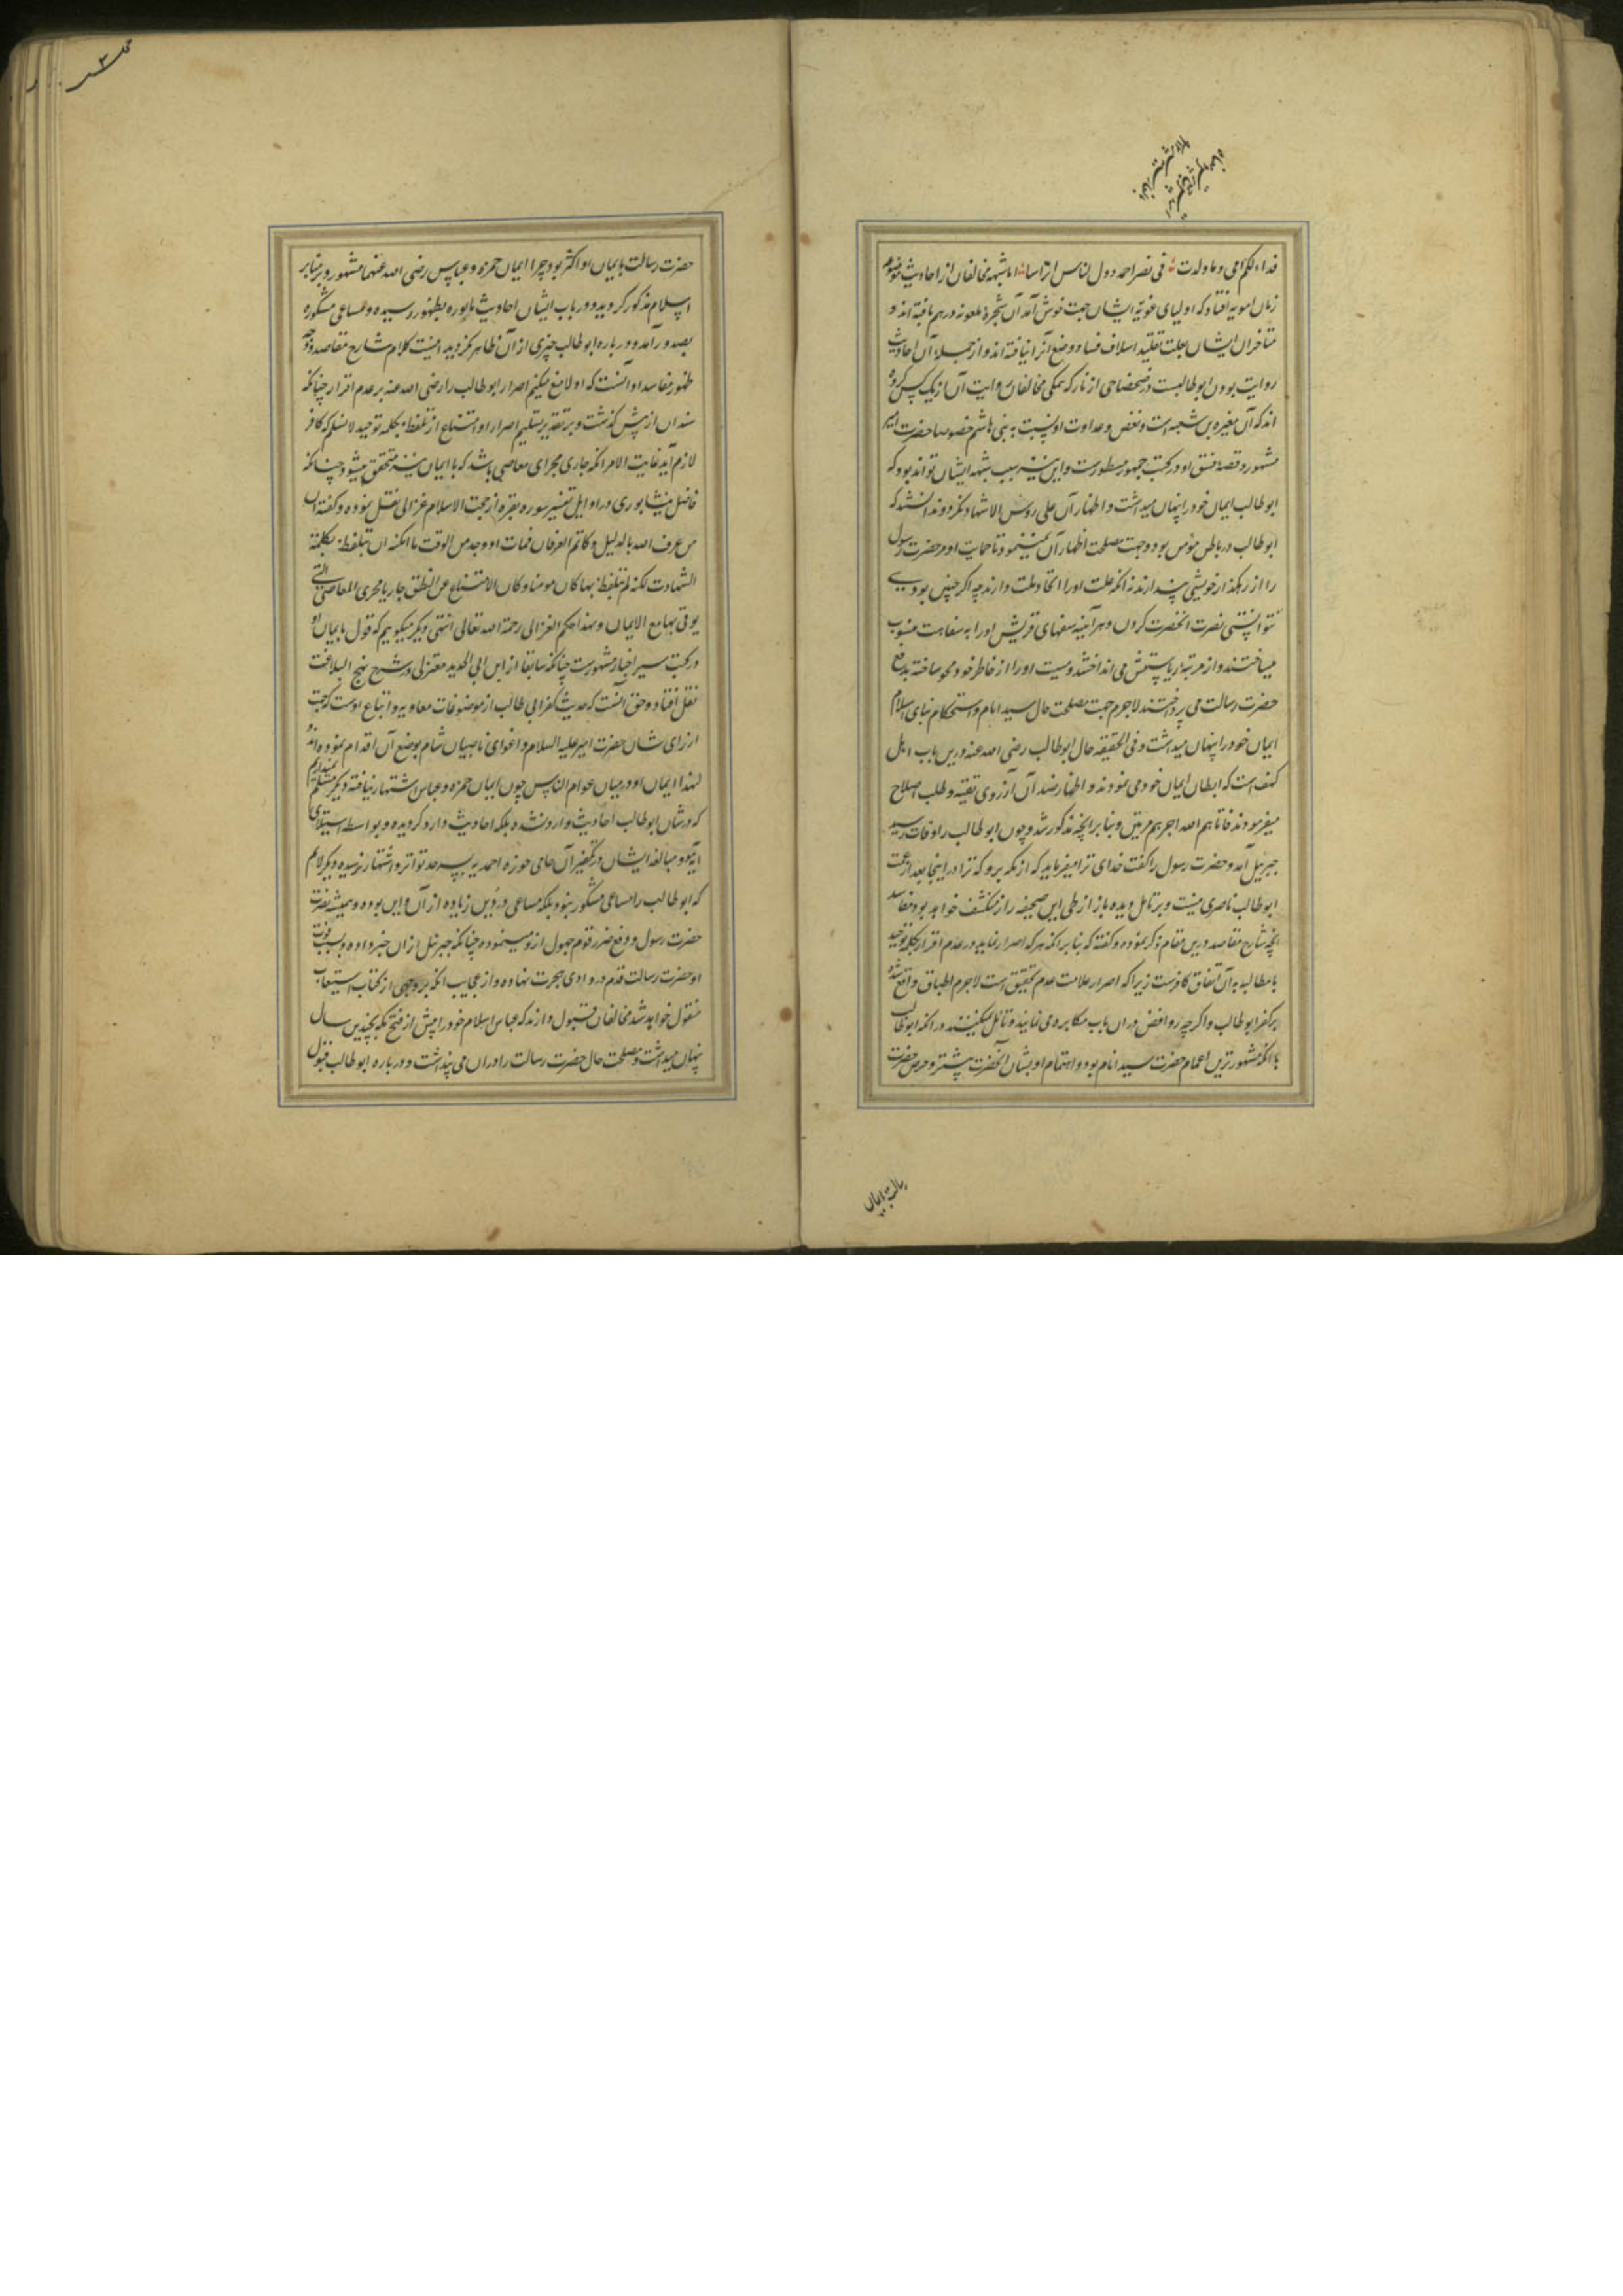 فداء لكم امی و ما ولدت فی نصر احمد دون الناس اتراسا اما شبهه مخالفان از احادیث موضوعه
زمان امویه افتاده که اولیای غویّه ایشان جهت خوش آمد آن شجرهٔ ملعونه درهم بافته‌اند و
متاخران ایشان بعلت تقلید اسلاف فساد وضع آنرا نیافته‌اند و از جمله آن احادیث
روایت بودن ابوطالبست در ضحضاحی از نار که همگی مخالفان روایت آن از یک کس کرده
اند که آن مغیره بن شعبه است و بغض و عداوت او نسبت به بنی هاشم خصوصا حضرت امیر
مشهور و قصهٔ فسق او در کتب جمهور مسطورست و این نیز سبب شبهه ایشان تواند بود که
ابوطالب ایمان خود را پنهان میداشت و اظهار آن علی روس الاشهاد نکردند دانستند که
ابوطالب در باطن مؤمن بود و جهت مصلحت اظهار آن نمینمود تا حمایت او مر حضرت رسول
را از رهگذر خویشی پندارند نه آنکه علت او را اتحاد ملت دارند چه اگر چنین بودی
نتوانستی نصرت آنحضرت کردن و هر آینه سفهای قریش او را به سفاهت منسوب
میساختند و از مرتبهٔ ریاستش می انداختند و سیت او را از خاطر خود محو ساخته بدفع
حضرت رسالت می پرداختند لاجرم جهت مصلحت حال سید انام و استحکام بنای اسلام
ایمان خود را پنهان میداشت و فی الحقیقه حال ابوطالب رضی الله عنه درین باب اهل
کهف است که ابطان ایمان خود می نمودند و اظهار ضد آن از روی تقیه و طلب اصلاح
میفرمودند فاتاهم الله اجرهم مرتین و بنابر آنچه مذکور شد و چون ابوطالب را وفات رسید
جبرییل آمد و حضرت رسول را گفت خدای ترا میفرماید که از مکه برو که ترا در اینجا بعد از عمت
ابوطالب ناصری نیست و بر تامل دیده باز از طی این صحیفه راز منکشف خواهد بود مفاسد
آنچه شارح مقاصد درین مقام ذکر نموده و گفته که بنابر آنکه هر که اصرار نماید در عدم اقرار بکلمه توحید
با مطالبه به آن باتفاق کافرست زیرا که اصرار علامت عدم تحقیق است لاجرم اطباق واقع شد
بر کفر ابوطالب و اگر چه روافض در ان باب مکابره می نمایند و تامل نمیکنند در آنکه ابوطالب
با آنکه مشهورترین اعمام حضرت سید انام بود و اهتمام او بشان آنحضرت بیشتر و حرص حضرت
رسالت بایمان
حضرت رسالت بایمان او اکثر بود چرا ایمان حمزه و عباس رضی الله عنهما مشهور و بر منابر
اسلام مذکور گردید و در باب ایشان احادیث ماثوره بظهور رسیده و مساعی مشکوره
بصدور آمد و در باره ابوطالب چیزی از آن ظاهر نگردید اینست کلام شارح مقاصد و وجه
ظهور مفاسد او آنست که اولا منع میکنیم اصرار ابوطالب را رضی الله عنه بر عدم اقرار چنانکه
سند آن از پیش گذشت و بر تقدیر تسلیم اصرار او امتناع از تلفظ بکلمه توحید لا نسلم که کافر
لازم آید غایت الامر آنکه جاری مجرای معاصی باشد که با ایمان نیز متحقق میشود چنانکه
فاضل نیشابوری در اوایل تفسیر سوره بقره از حجت الاسلام غزالی نقل نموده و گفته ان
من عرف الله بالدلیل و کاتم العرفان فمات او وجد من الوقت ما امکنه ان یتلفظ بکلمة
الشهادت لکنه لم یتلفظ بها کان مومنا و کان الامتناع عن النطق جاریا مجری المعاصی التی
یوتی بها مع الایمان و بهذا حکم الغزالی رحمة الله تعالی انتهی و دیگر میگوییم که قول بایمان او
در کتب سیر اخبار مشهورست چنانکه سابقا از ابن ابی الحدید معتزلی در شرح نهج البلاغت
نقل افتاد و حق آنست که حدیث کفر ابی طالب از موضوعات معاویه و اتباع اوست که جهت
ازرای شان حضرت امیر علیه السلام و اغوای ناصبیان شام بوضع آن اقدام نموده اند و
لهذا ایمان او در میان عوام الناس چون ایمان حمزه و عباس اشتهار نیافته و دیگر مسلم نمیداریم
که در شان ابوطالب احادیث وارد نشده بلکه احادیث وارد گردیده و بواسطه استیلای
امویه و مبالغه ایشان در تکفیر آن حامی حوزه احمدیه بسرحد تواتر و اشتهار نرسیده و دیگر لا نسلم
که ابوطالب را مساعی مشکور نبود بلکه مساعی در دین زیاده از آن و این بوده و همیشه نصرت
حضرت رسول و دفع ضرر قوم جهول ازو مینموده چنانکه جبرئیل از ان خبر داده و بسبب فوت
او حضرت رسالت قدم در وادی هجرت نهاده و از عجایب آنکه بر وجهی از کتاب استیعاب
منقول خواهد شد مخالفان قبول دارند که عباس اسلام خود را پیش از فتح مکه بچندین سال
پنهان میداشت و مصلحت حال حضرت رسالت را در ان می پنداشت و در باره ابوطالب قبول